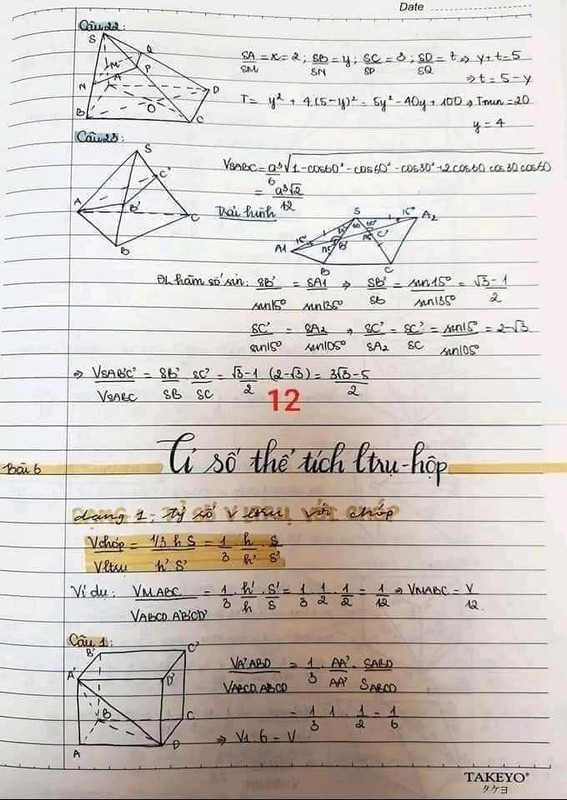 Date
Câu 22:
S
M
Q
P
N
A
D
B
O
C
SA/SM = x = 2 ; SB/SN = y ; SC/SP = 3 ; SD/SQ = t ⇒ y + t = 5
⇒ t = 5 - y
T = y² + 4.(5-y)² = 5y² - 40y + 100 ⇒ Tmin = 20
y = 4
Câu 23:
S
C'
A
B'
C
B
VSABC = a³/6 √1 - cos60² - cos60² - cos30² + 2cos60 cos30 cos60
= a³√2/12
Trải hình
S
A1
A2
15°
15°
B'
C'
B
C
ĐL hàm số sin: SB'/sin15° = SA1/sin135° ⇒ SB'/SB = sin15°/sin135° = √3-1/2
SC'/sin15° = SA2/sin105° ⇒ SC'/SA2 = SC'/SC = sin15°/sin105° = 2-√3
⇒ VSAB'C'/VSABC = SB'/SB . SC'/SC = √3-1/2 (2-√3) = 3√3-5/2
12
Bài 6
Tỉ số thể tích ltrụ-hộp
dạng 1: Tỷ số V ltrụ với chóp
Vchóp/Vltrụ = 1/3 h S/h' S' = 1/3 . h/h' . S/S'
Ví dụ: VMABC/VABCD.A'B'C'D' = 1/3 . h'/h . S'/S = 1/3 . 1/2 . 1/2 = 1/12 ⇒ VMABC = V/12
Câu 1:
B'
C'
A'
D'
B
C
A
D
VA'ABD/VABCD.ABCD = 1/3 . AA'/AA' . SABD/SABCD
= 1/3 . 1 . 1/2 = 1/6
⇒ V1.6 = V
TAKEYO®
タケヨ